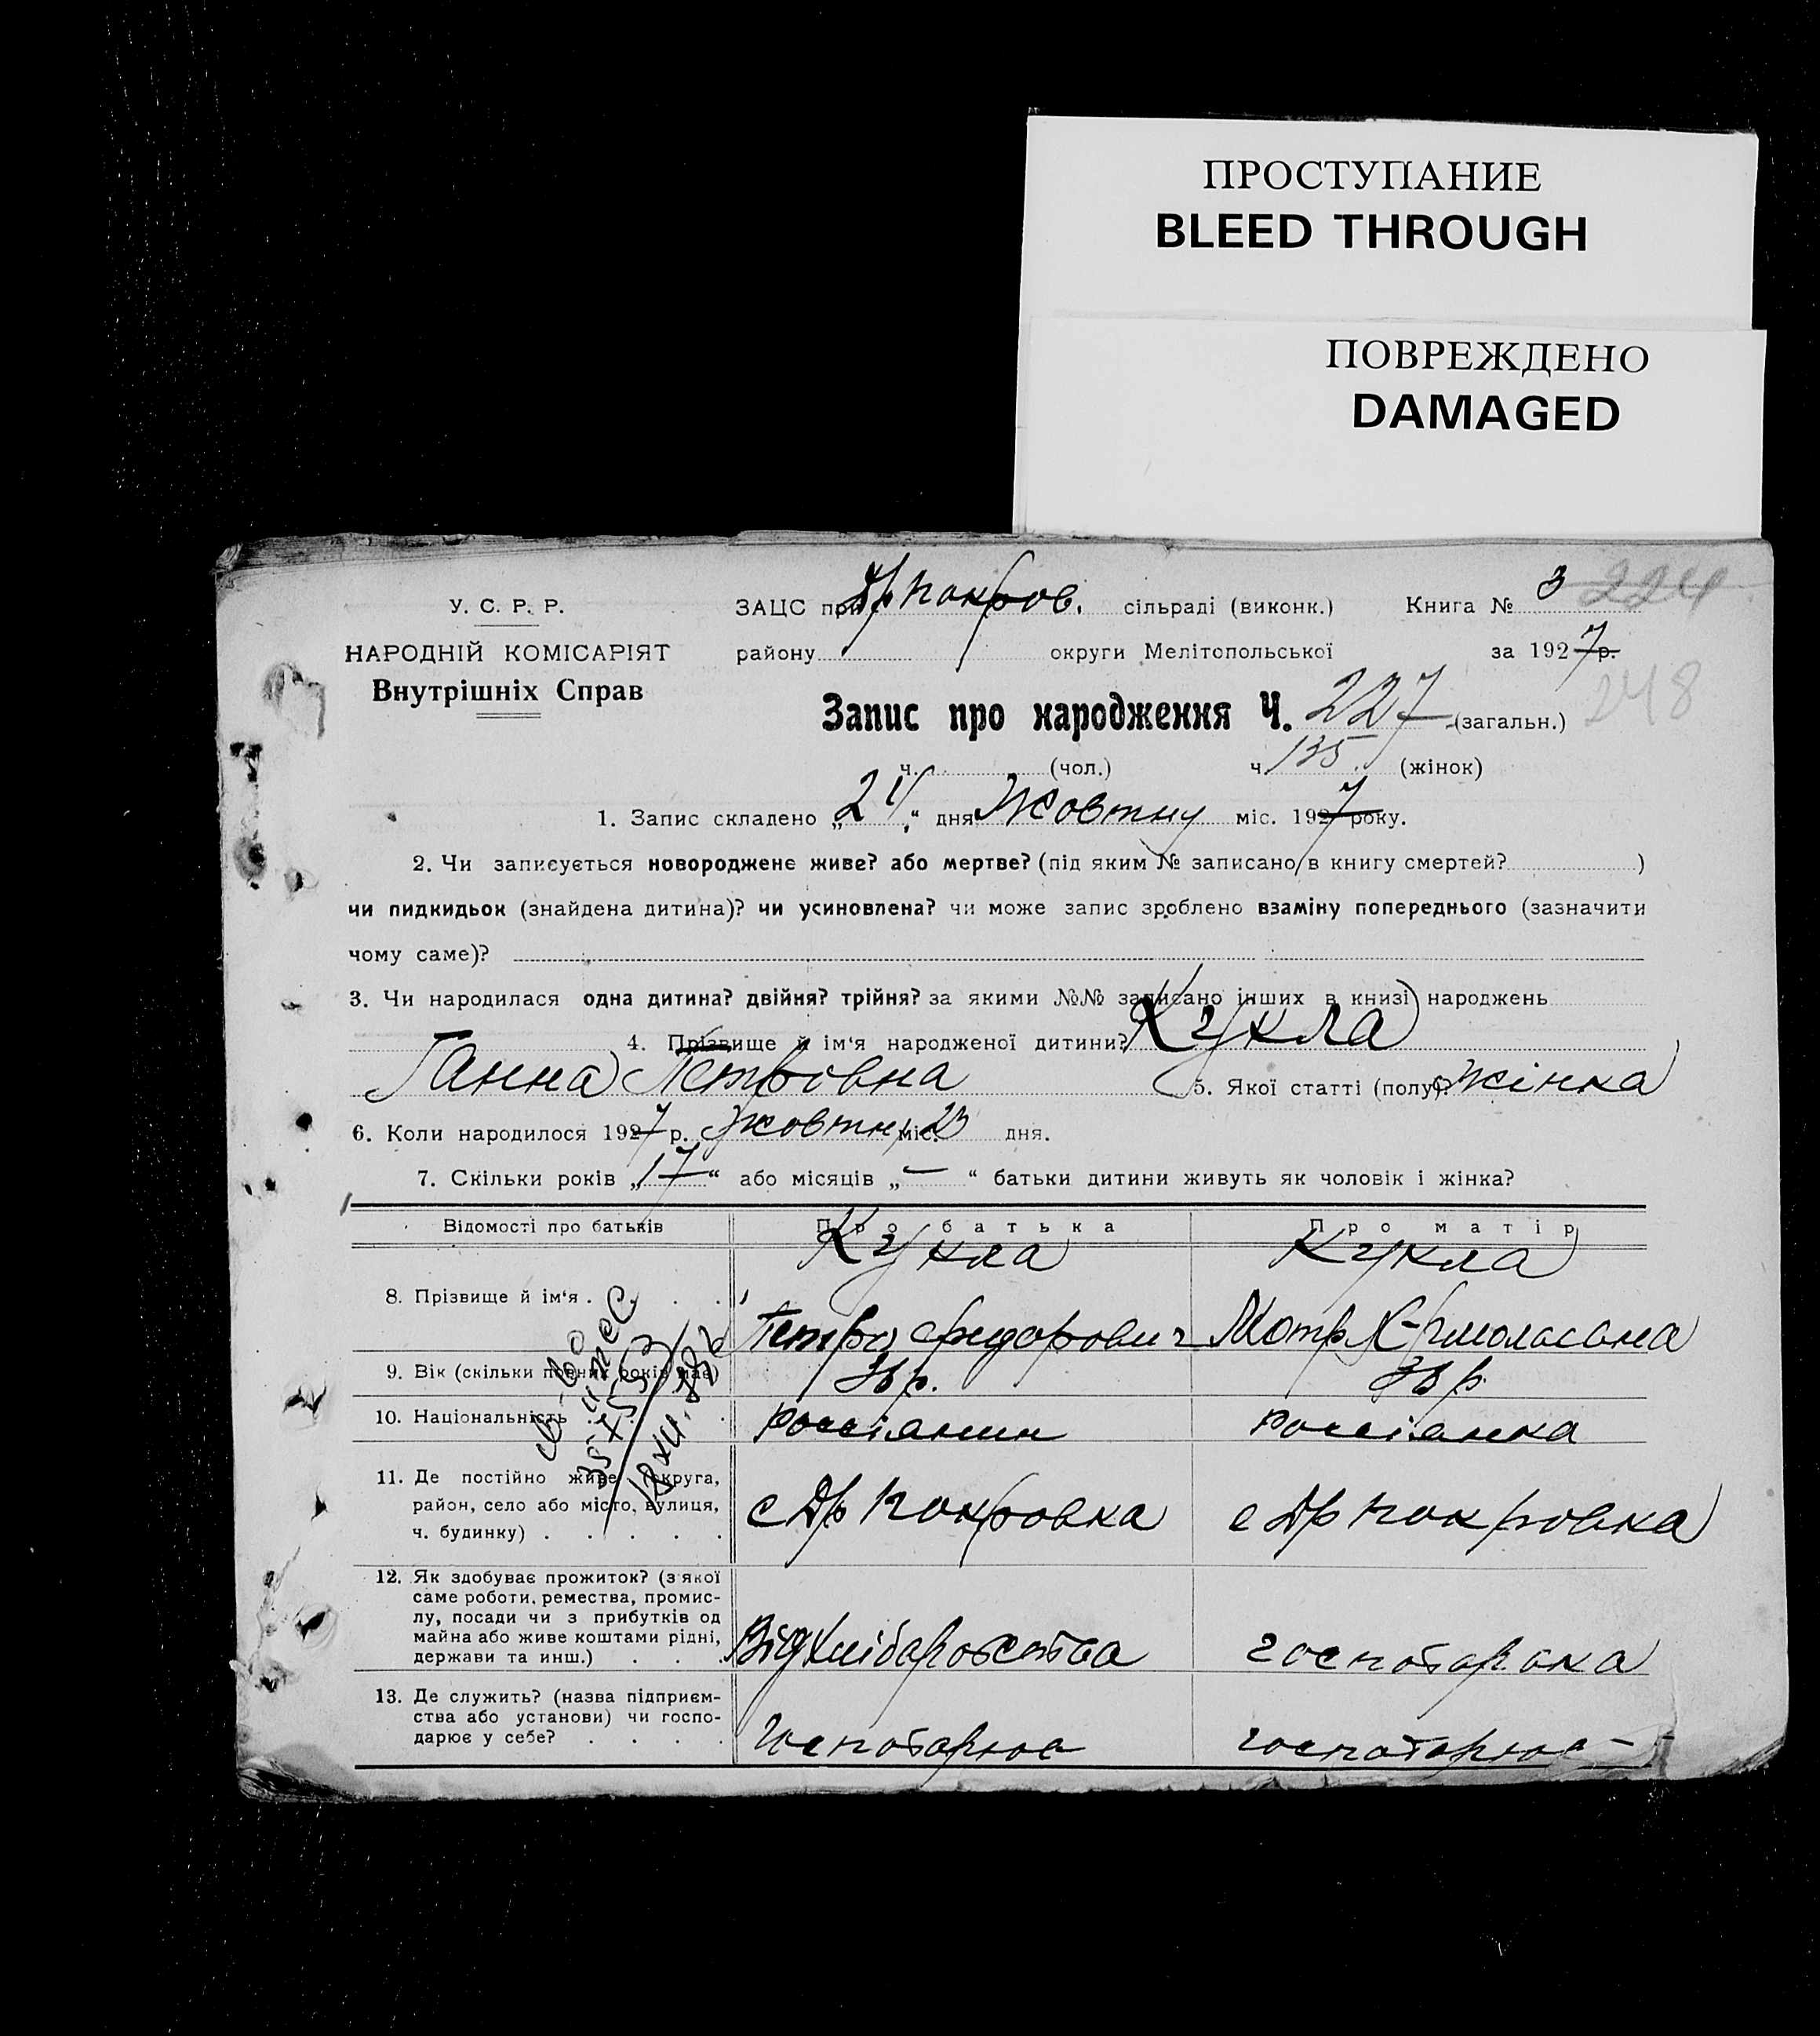 ПРОСТУПАНИЕ
BLEED THROUGH
ПОВРЕЖДЕНО
DAMAGED
У. С. Р. Р.
НАРОДНІЙ КОМІСАРІЯТ
Внутрішніх Справ
ЗАЦС при Др Покров. сільраді (виконк.) Книга № 3 224
району округи Мелітопольської за 1927 р.
248
Запис про народження Ч. 227 (загальн.)
ч. (чол.) ч 135 (жінок)
1. Запис складено „24“ дня Жовтну міс. 1927 року.
2. Чи записується новороджене живе? або мертве? (під яким № записано в книгу смертей? )
чи пидкидьок (знайдена дитина)? чи усиновлена? чи може запис зроблено взаміну попереднього (зазначити
чому саме)?
3. Чи народилася одна дитина? двійня? трійня? за якими №№ записано інших в книзі народжень
4. Прізвище й ім‘я народженої дитини? Кукла
Ганна Петровна 5. Якої статті (полу)? жінка
6. Коли народилося 1927 р. Жовтну міс. 23 дня.
7. Скільки років „17“ або місяців „—“ батьки дитини живуть як чоловік і жінка?
Відомості про батьків Про батька Про матір
Кукла Кукла
8. Прізвище й ім‘я . . . .
Петро Фидорович Мотря
9. Вік (скільки повних років має) р. р.
10. Національність россіянин россіанка
11. Де постійно живе (округа,
район, село або місто, вулиця,
ч. будинку) . . . . . с Др Покровка с Др Покровка
12. Як здобуває прожиток? (з якої
саме роботи, ремества, промис-
лу, посади чи з прибутків од
майна або живе коштами рідні,
держави та инш.) . . . Від хлібаробства госпотарака
13. Де служить? (назва підприєм-
ства або установи) чи госпо-
дарює у себе? . . . . госпотарює госпотарює